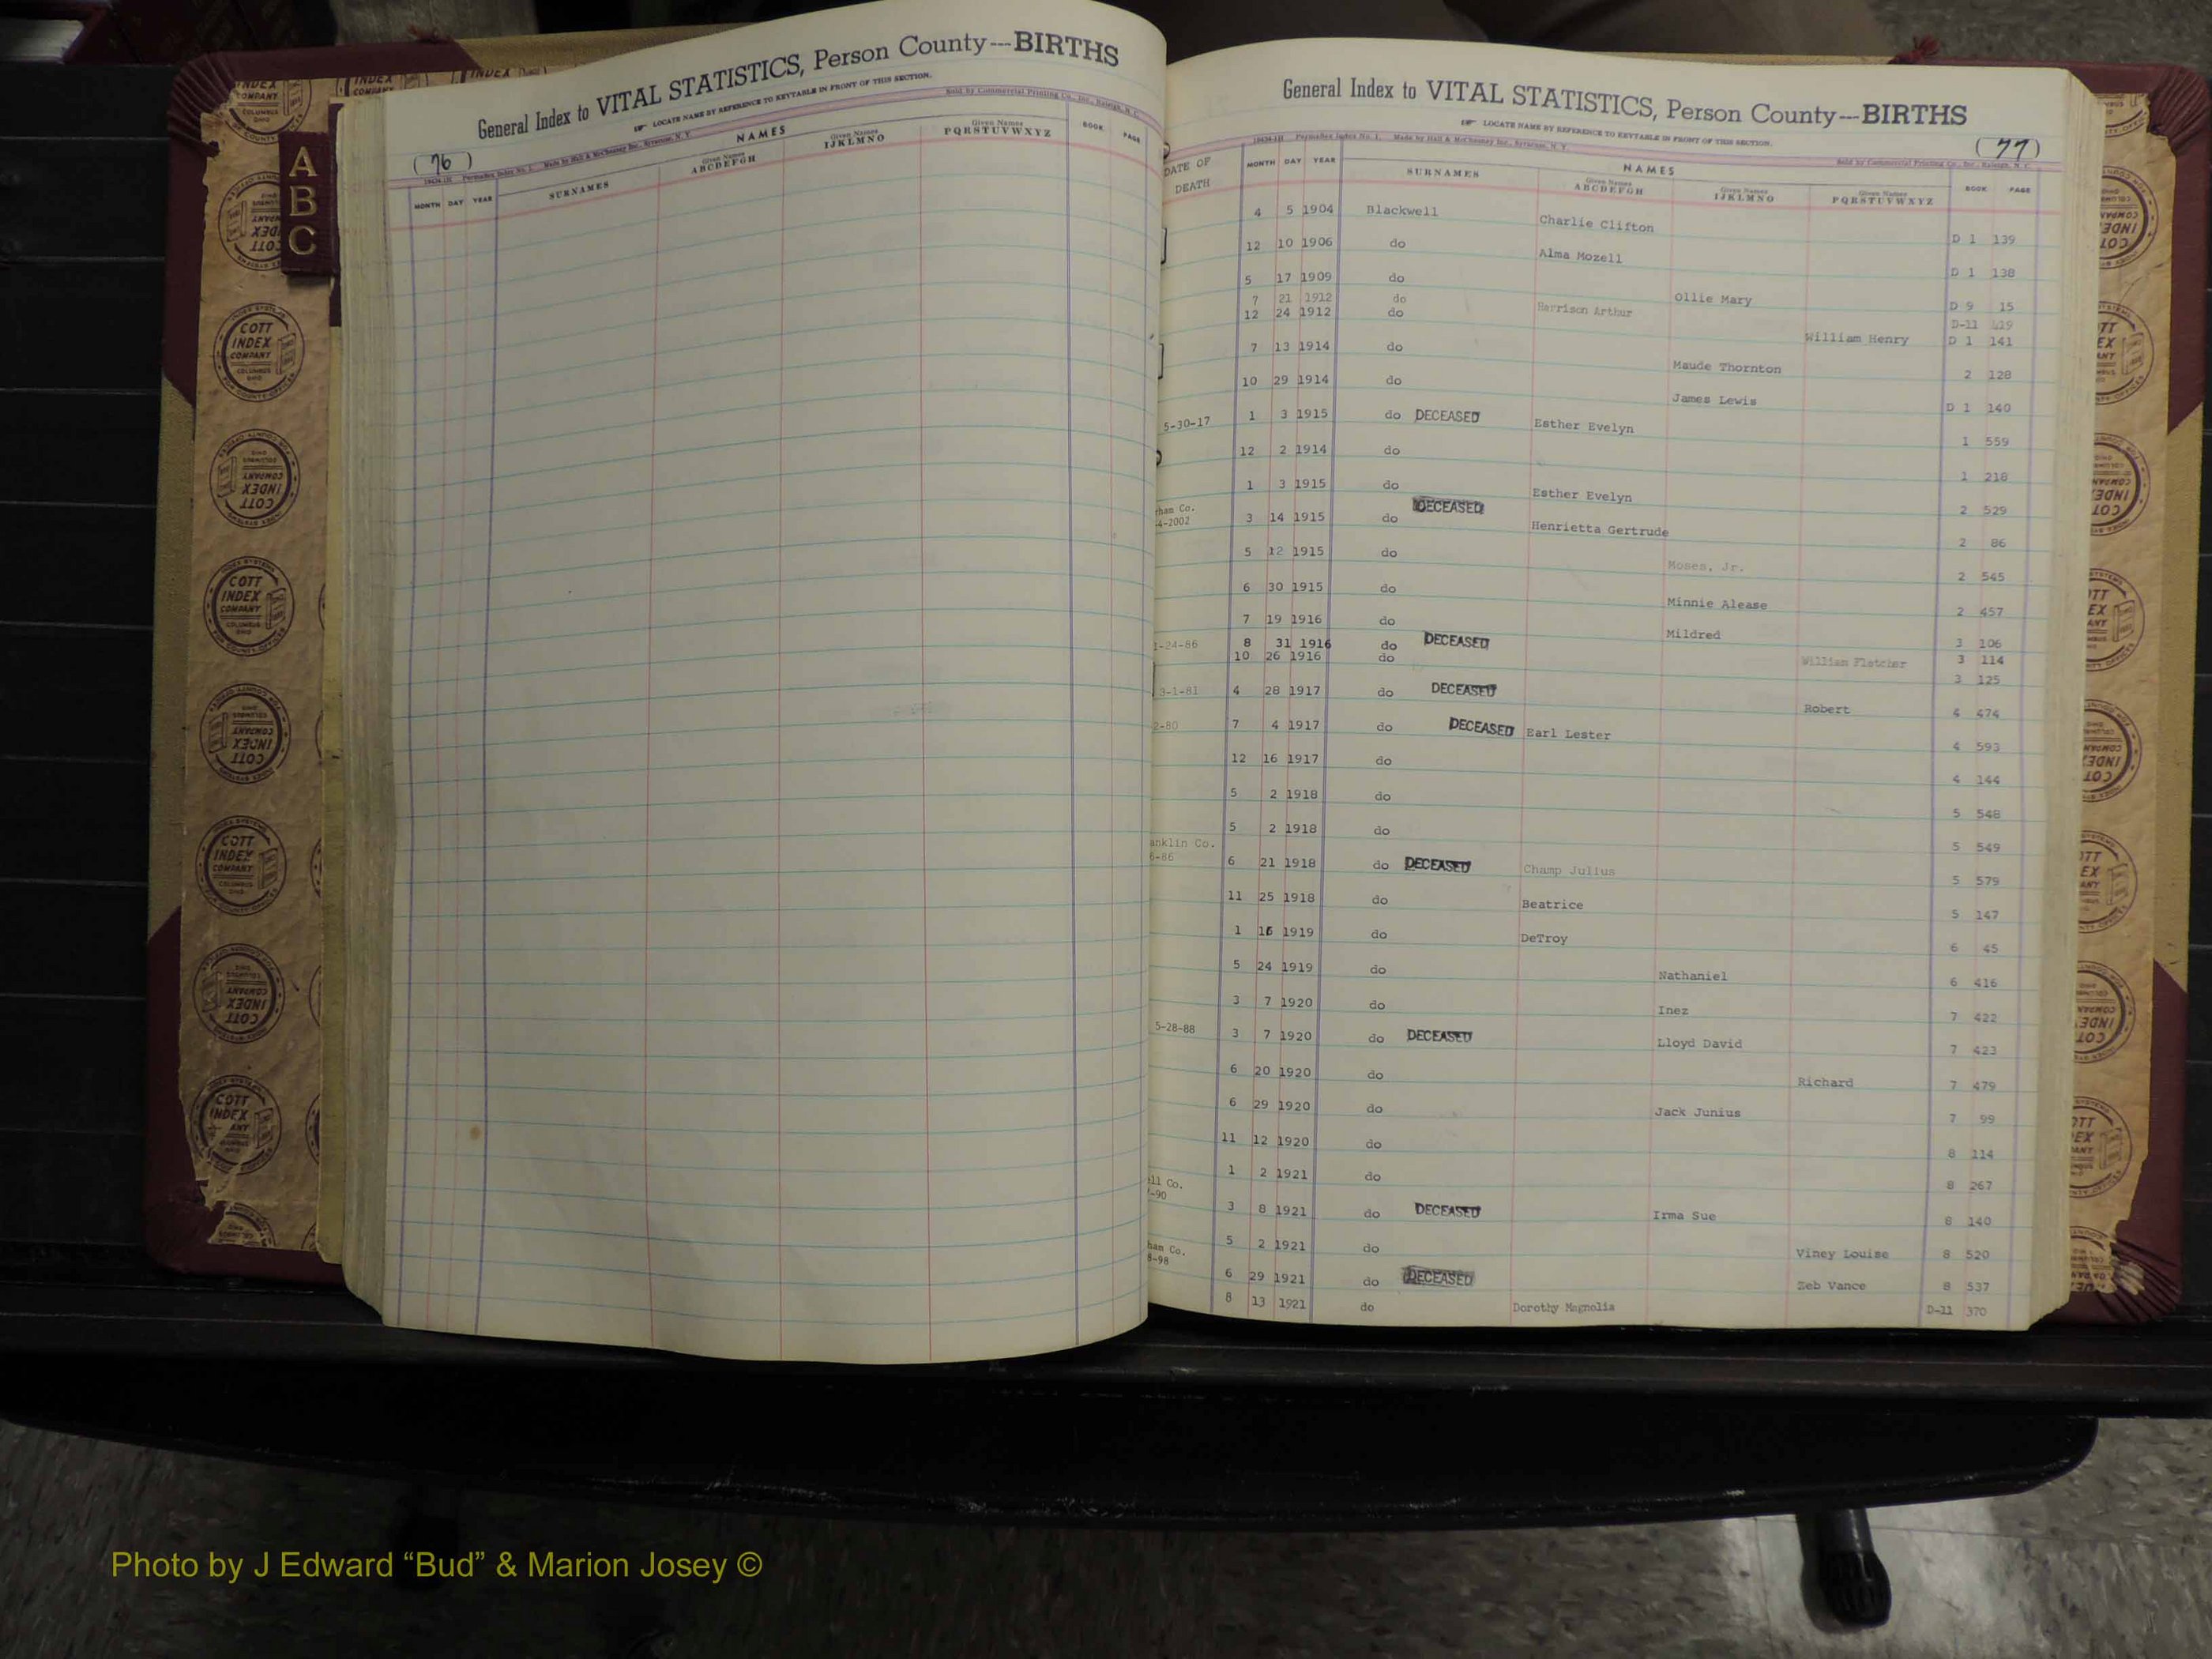 General Index to VITAL STATISTICS, Person County---BIRTHS
LOCATE NAME BY REFERENCE TO KEYTABLE IN FRONT OF THIS SECTION.
(76)
Sold by Commercial Printing Co., Inc., Raleigh, N. C.
NAMES
MONTH DAY YEAR SURNAMES Given Names ABCDEFGH Given Names IJKLMNO Given Names PQRSTUVWXYZ BOOK PAGE
A
B
C
General Index to VITAL STATISTICS, Person County---BIRTHS
LOCATE NAME BY REFERENCE TO KEYTABLE IN FRONT OF THIS SECTION.
(77)
Sold by Commercial Printing Co., Inc., Raleigh, N. C.
NAMES
DATE OF DEATH MONTH DAY YEAR SURNAMES Given Names ABCDEFGH Given Names IJKLMNO Given Names PQRSTUVWXYZ BOOK PAGE
4 5 1904 Blackwell Charlie Clifton D 1 139
12 10 1906 do Alma Mozell D 1 138
5 17 1909 do Ollie Mary D 9 15
7 21 1912 do Harrison Arthur D-11 419
12 24 1912 do William Henry D 1 141
7 13 1914 do Maude Thornton 2 128
10 29 1914 do James Lewis D 1 140
5-30-17 1 3 1915 do DECEASED Esther Evelyn 1 559
12 2 1914 do 1 218
1 3 1915 do Esther Evelyn 2 529
ham Co.
4-2002 3 14 1915 do DECEASED Henrietta Gertrude 2 86
5 12 1915 do Moses, Jr. 2 545
6 30 1915 do Minnie Alease 2 457
7 19 1916 do Mildred 3 106
1-24-86 8 31 1916 do DECEASED William Fletcher 3 114
10 26 1916 do 3 125
3-1-81 4 28 1917 do DECEASED Robert 4 474
2-80 7 4 1917 do DECEASED Earl Lester 4 593
12 16 1917 do 4 144
5 2 1918 do 5 548
5 2 1918 do 5 549
anklin Co.
6-86 6 21 1918 do DECEASED Champ Julius 5 579
11 25 1918 do Beatrice 5 147
1 16 1919 do DeTroy 6 45
5 24 1919 do Nathaniel 6 416
3 7 1920 do Inez 7 422
5-28-88 3 7 1920 do DECEASED Lloyd David 7 423
6 20 1920 do Richard 7 479
6 29 1920 do Jack Junius 7 99
11 12 1920 do 8 114
1 2 1921 do 8 267
ll Co.
-90 3 8 1921 do DECEASED Irma Sue 8 140
5 2 1921 do Viney Louise 8 520
ham Co.
8-98 6 29 1921 do DECEASED Zeb Vance 8 537
8 13 1921 do Dorothy Magnolia D-11 370
COTT INDEX COMPANY
COLUMBUS OHIO
Photo by J Edward “Bud” & Marion Josey ©